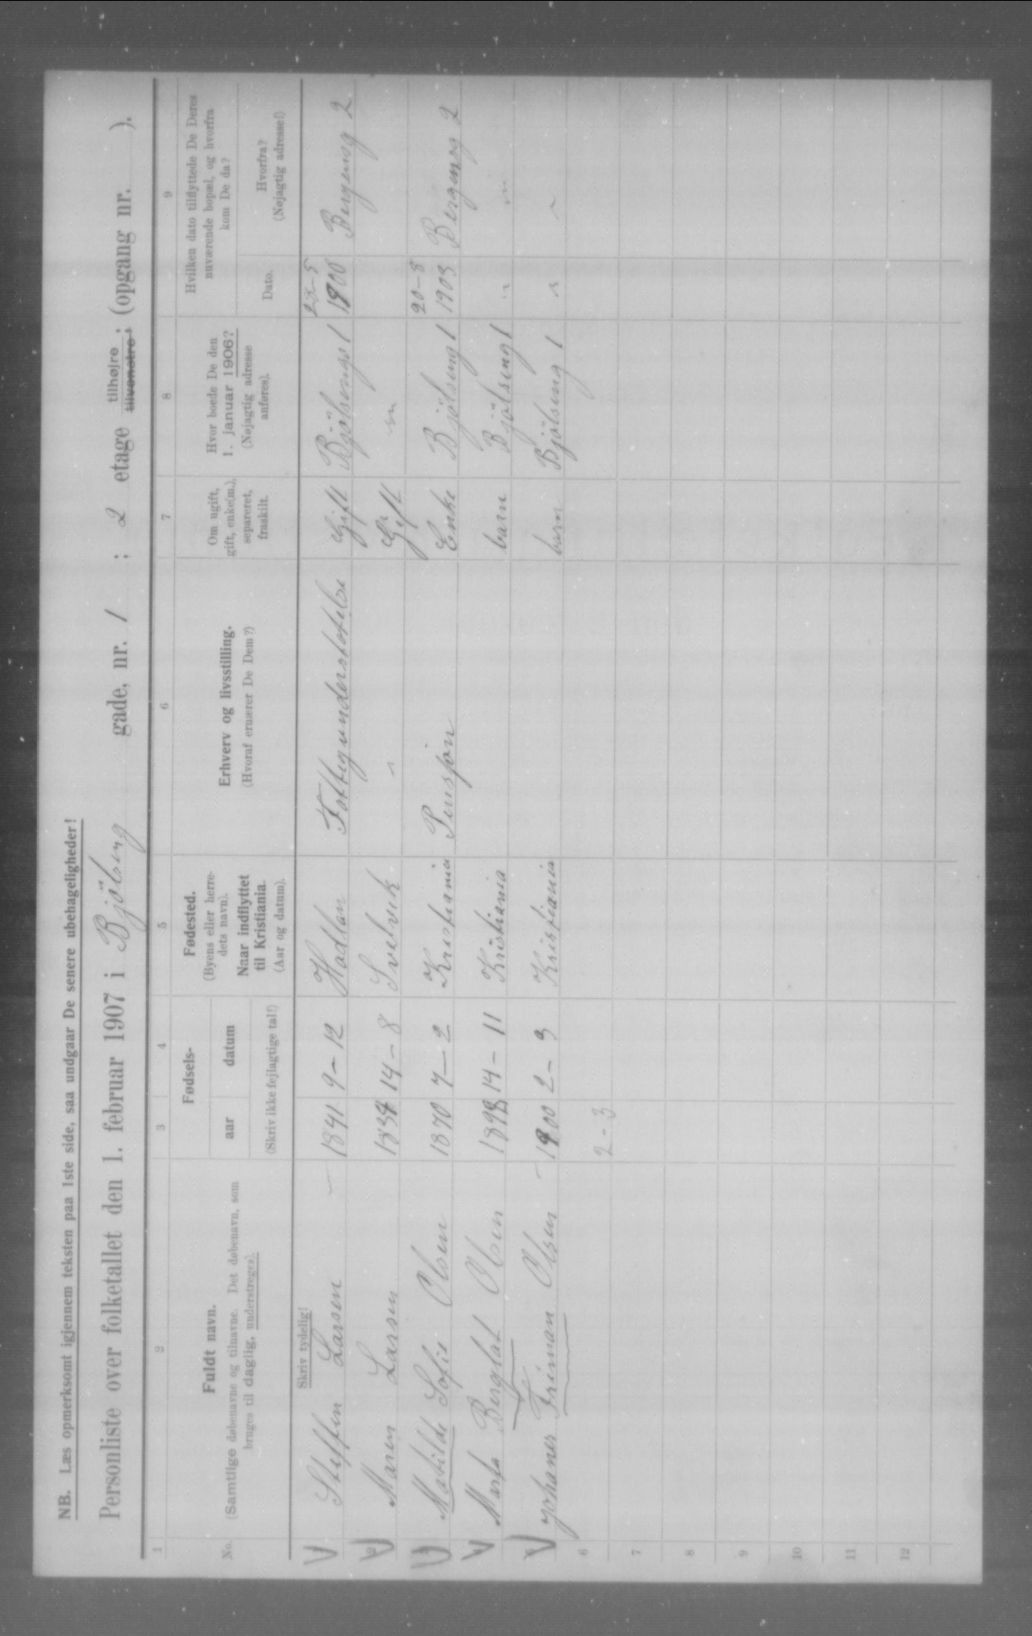 NB. Læs opmerksomt igjennem teksten paa 1ste side, saa undgaar De senere ubehageligheder!
Personliste over folketallet den 1. februar 1907 i Bjölseng gade, nr. 1 ; 2 etage tilhøjre tilvenstre ; (opgang nr. ).
1 2 3 4 5 6 7 8 9
No. Fuldt navn. (Samtlige døbenavne og tilnavne. Det døbenavn, som bruges til daglig, understreges).
Fødsels- aar datum (Skriv ikke fejlagtige tal!)
Fødested. (Byens eller herredets navn). Naar indflyttet til Kristiania. (Aar og datum).
Erhverv og livsstilling. (Hvoraf ernærer De Dem?)
Om ugift, gift, enke(m.), separeret, fraskilt.
Hvor boede De den 1. januar 1906? (Nøjagtig adresse anføres).
Hvilken dato tilflyttede De Deres nuværende bopæl, og hvorfra kom De da?
Dato. Hvorfra? (Nøjagtig adresse!)
Skriv tydelig!
Steffen Larsen 1841 9-12 Fattigunderstøtelse Gift 1 1900 Bergensg 2
Maren Larsen 14-8 Svelvik " Gift "
Matilde Sofie Olsen 1870 7-2 Kristiania Pensjon Enke Bjölseng 1 20-8 1903 2
Marta Olsen 1898 14-11 Kristiania barn Bjölseng 1 " "
Johanes Friman Olsen 1900 2-3 Kristiania barn Bjölseng 1 " "
6 2-3
7
8
9
10
11
12